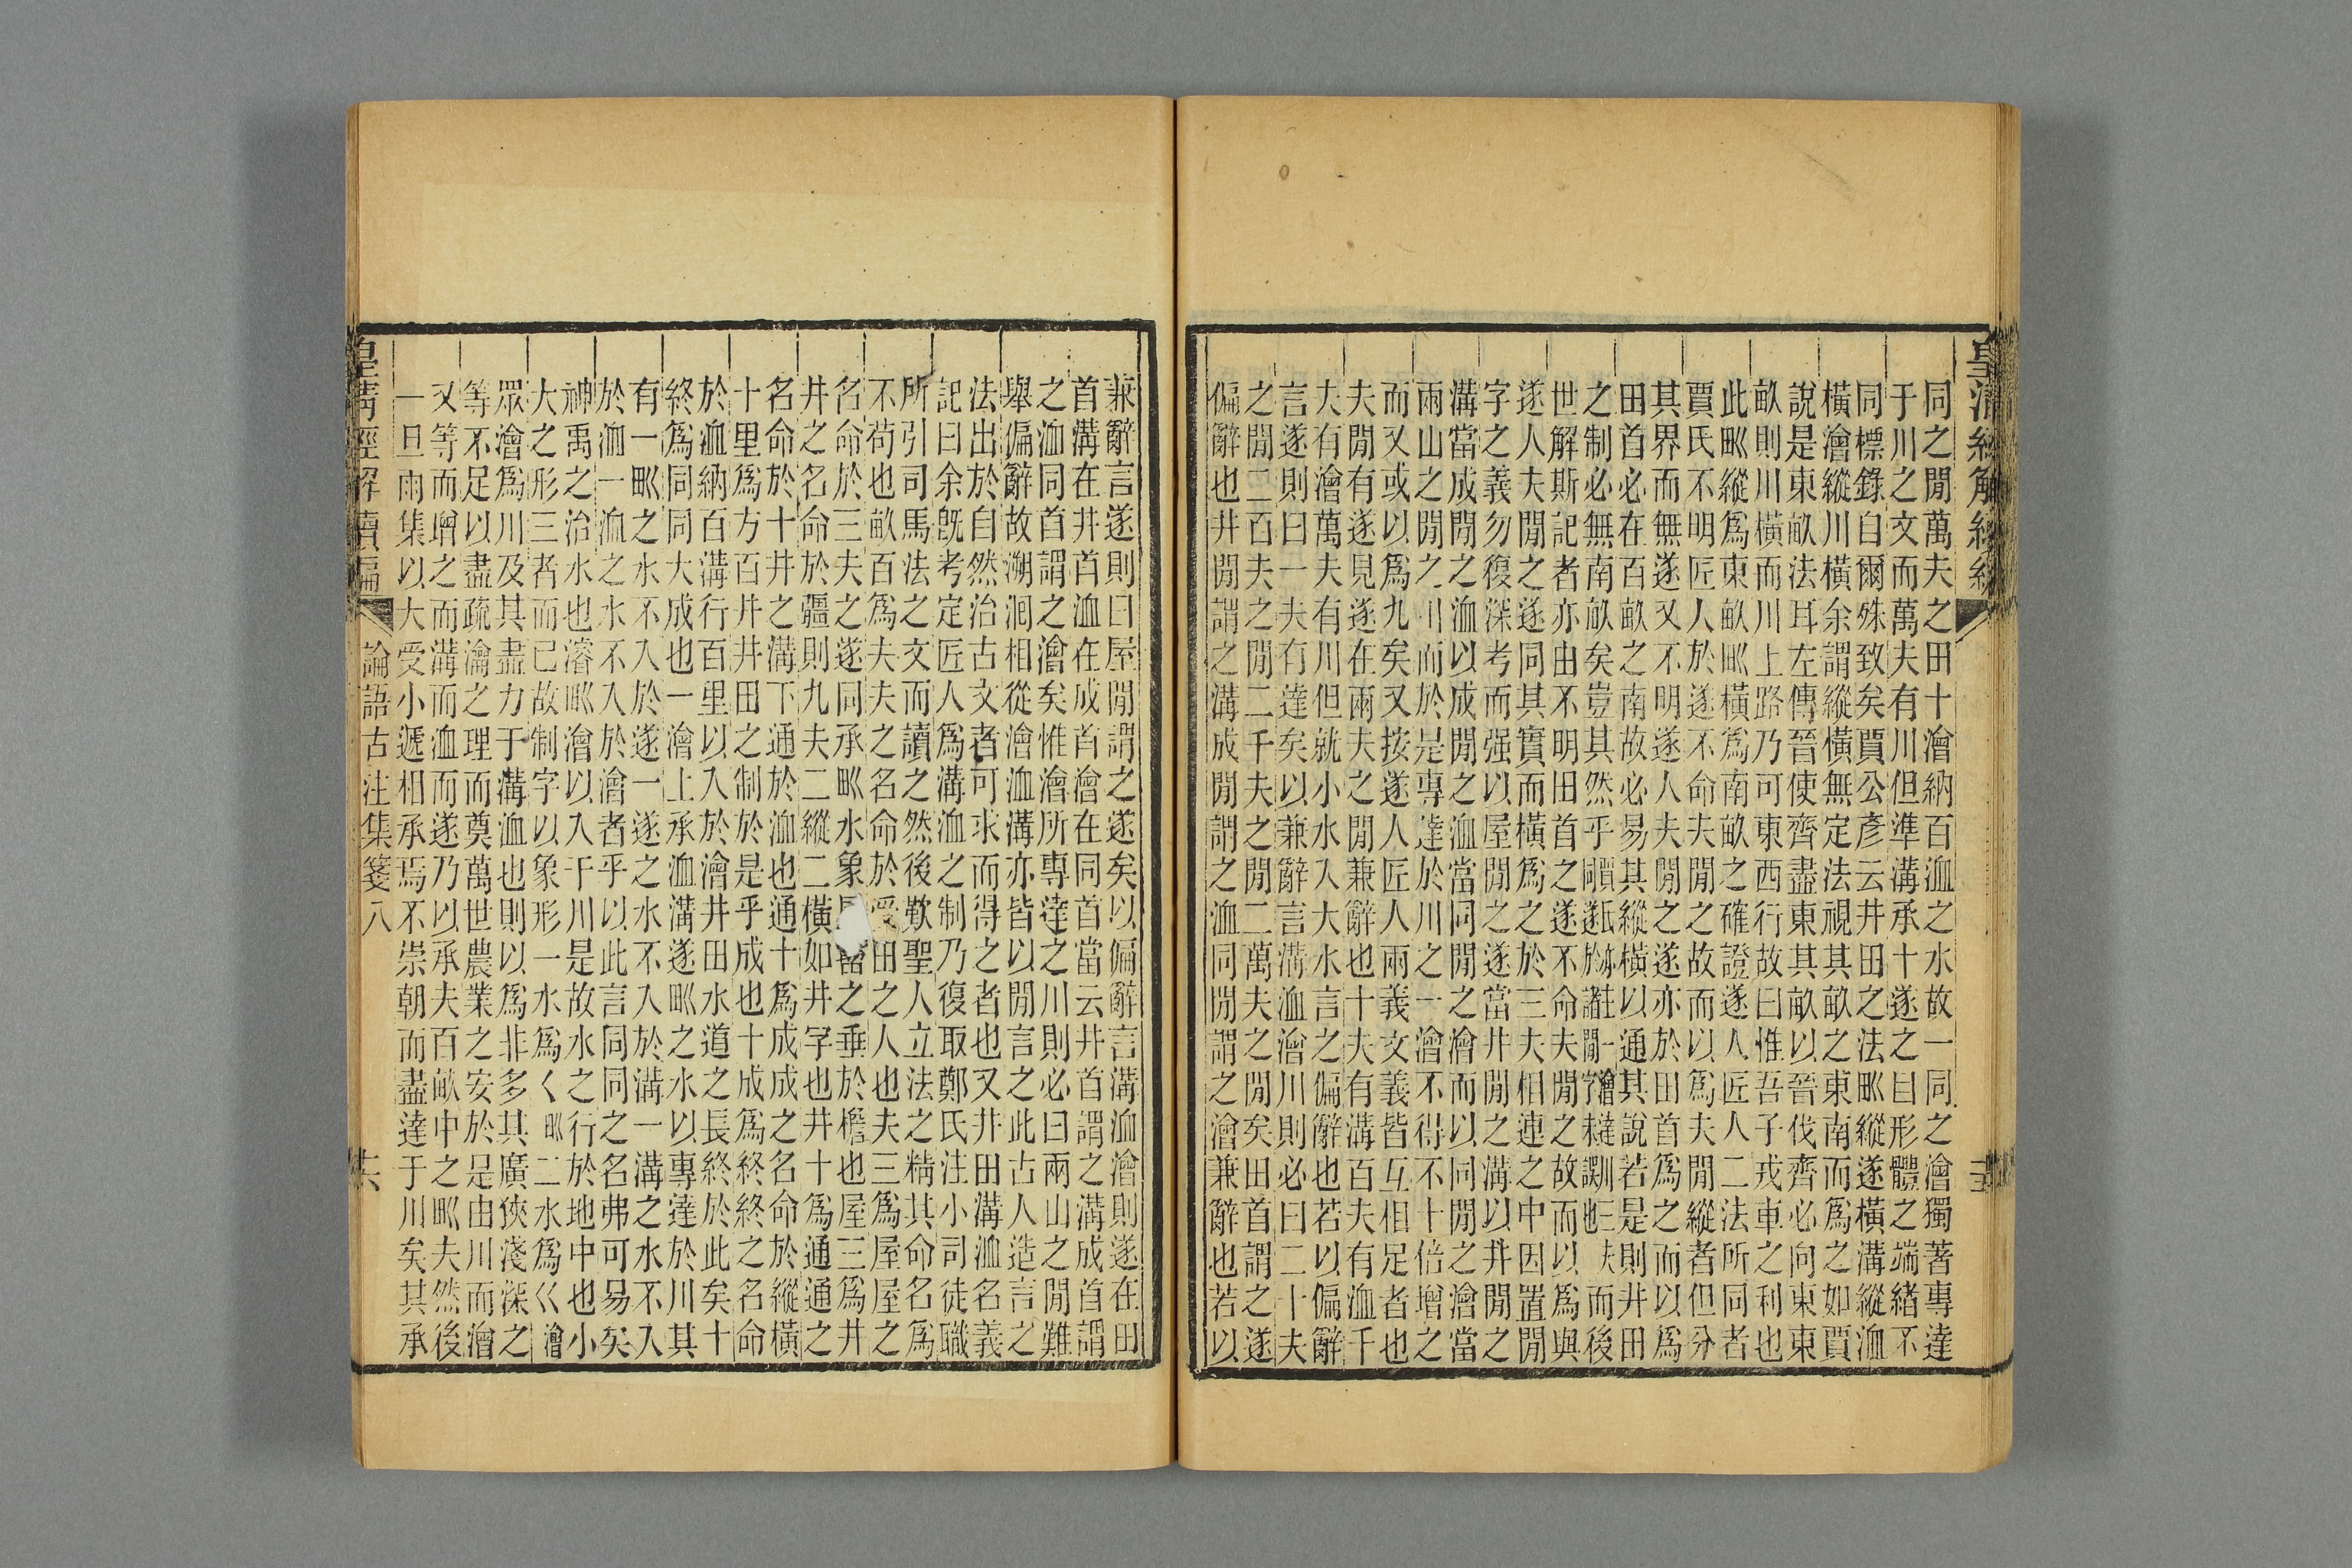 皇清經解續編
同之閒萬夫之田十澮納百洫之水故一同之澮獨著專達
于川之文而萬夫有川但準溝承十遂之曰形體之端緒不
同標錄自爾殊致矣賈公彥云井田之法甽縱遂橫溝縱洫
橫澮縱川橫余謂縱橫無定法視其畝之東南而爲之如賈
說是東畝法耳左傳晉使齊盡東其畝以晉伐齊必向東東
畝則川橫而川上路乃可東西行故曰惟吾子戎車之利也
此甽縱爲東畝甽橫爲南畝之確證遂人匠人二法所同者
賈氏不明匠人於遂不命夫閒之故而以爲夫閒縱者但分
其界而無遂又不明遂人夫閒之遂亦於田首爲之而以爲
田首必在百畝之南故必易其縱橫以通其說若是則井田
之制必無南畝矣豈其然乎而後
世解斯記者亦由不明田首之遂不命夫閒之故而以爲與
遂人夫閒之遂同其實而橫爲之於三夫相連之中因置閒
字之義勿復深考而强以屋閒之遂當井閒之溝以井閒之
溝當成閒之洫以成閒之洫當同閒之澮而以同閒之澮當
兩山之閒之川而於是專達於川之一澮不得不十倍增之
而又或以爲九矣又按遂人匠人兩義文義皆互相足者也
夫閒有遂見遂在兩夫之閒兼辭也十夫有溝百夫有洫千
夫有澮萬夫有川但就小水入大水言之偏辭也若以偏辭
言遂則曰一夫有遂矣以兼辭言溝洫澮川則必曰二十夫
之閒二百夫之閒二千夫之閒二萬夫之閒矣田首謂之遂
偏辭也井閒謂之溝成閒謂之洫同閒謂之澮兼辭也若以
兼辭言遂則曰屋閒謂之遂矣以偏辭言溝洫澮則遂在田
首溝在井首洫在成首澮在同首當云井首謂之溝成首謂
之洫同首謂之澮矣惟澮所專達之川則必曰兩山之閒難
舉偏辭故溯洄相從澮洫溝亦皆以閒言之此古人造言之
法出於自然治古文者可求而得之者也又井田溝洫名義
記曰余旣考定匠人爲溝洫之制乃復取鄭氏注小司徒職
所引司馬法之文而讀之然後歎聖人立法之精其命名爲
不苟也畝百爲夫夫之名命於受田之人也夫三爲屋屋之
名命於三夫之遂同承甽水象屋霤之垂於檐也屋三爲井
井之名命於疆則九夫二縱二橫如井字也井十爲通通之
名命於十井之溝下通於洫也通十爲成成之名命於縱橫
十里爲方百井井田之制於是乎成也十成爲終終之名命
於洫納百溝行百里以入於澮井田水道之長終於此矣十
終爲同同大成也一澮上承洫溝遂甽之水以專達於川其
有一甽之水不入於遂一遂之水不入於溝一溝之水不入
於洫一洫之水不入於澮者乎以此言同同之名弗可易矣
神禹之治水也濬甽澮以入于川是故水之行於地中也小
大之形三者而已故制字以象形一水爲𡿨甽二水爲巜澮
眾澮爲川及其盡力于溝洫也則以爲非多其廣狹淺深之
等不足以盡疏瀹之理而奠萬世農業之安於是由川而澮
又等而增之而溝而洫而遂乃以承夫百畝中之甽夫然後
一旦雨集以大受小遞相承焉不崇朝而盡達于川矣其承
皇清經解續編 論語古注集箋八 十六